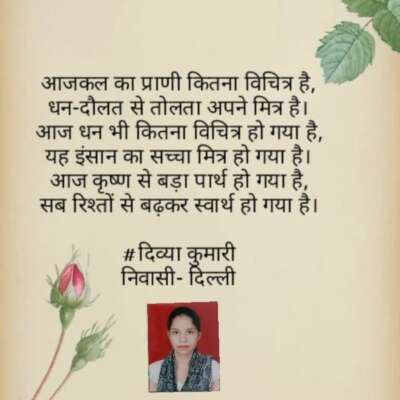 आजकल का प्राणी कितना विचित्र है,
धन-दौलत से तोलता अपने मित्र है।
आज धन भी कितना विचित्र हो गया है,
यह इंसान का सच्चा मित्र हो गया है।
आज कृष्ण से बड़ा पार्थ हो गया है,
सब रिश्तों से बढ़कर स्वार्थ हो गया है।
#दिव्या कुमारी
निवासी- दिल्ली